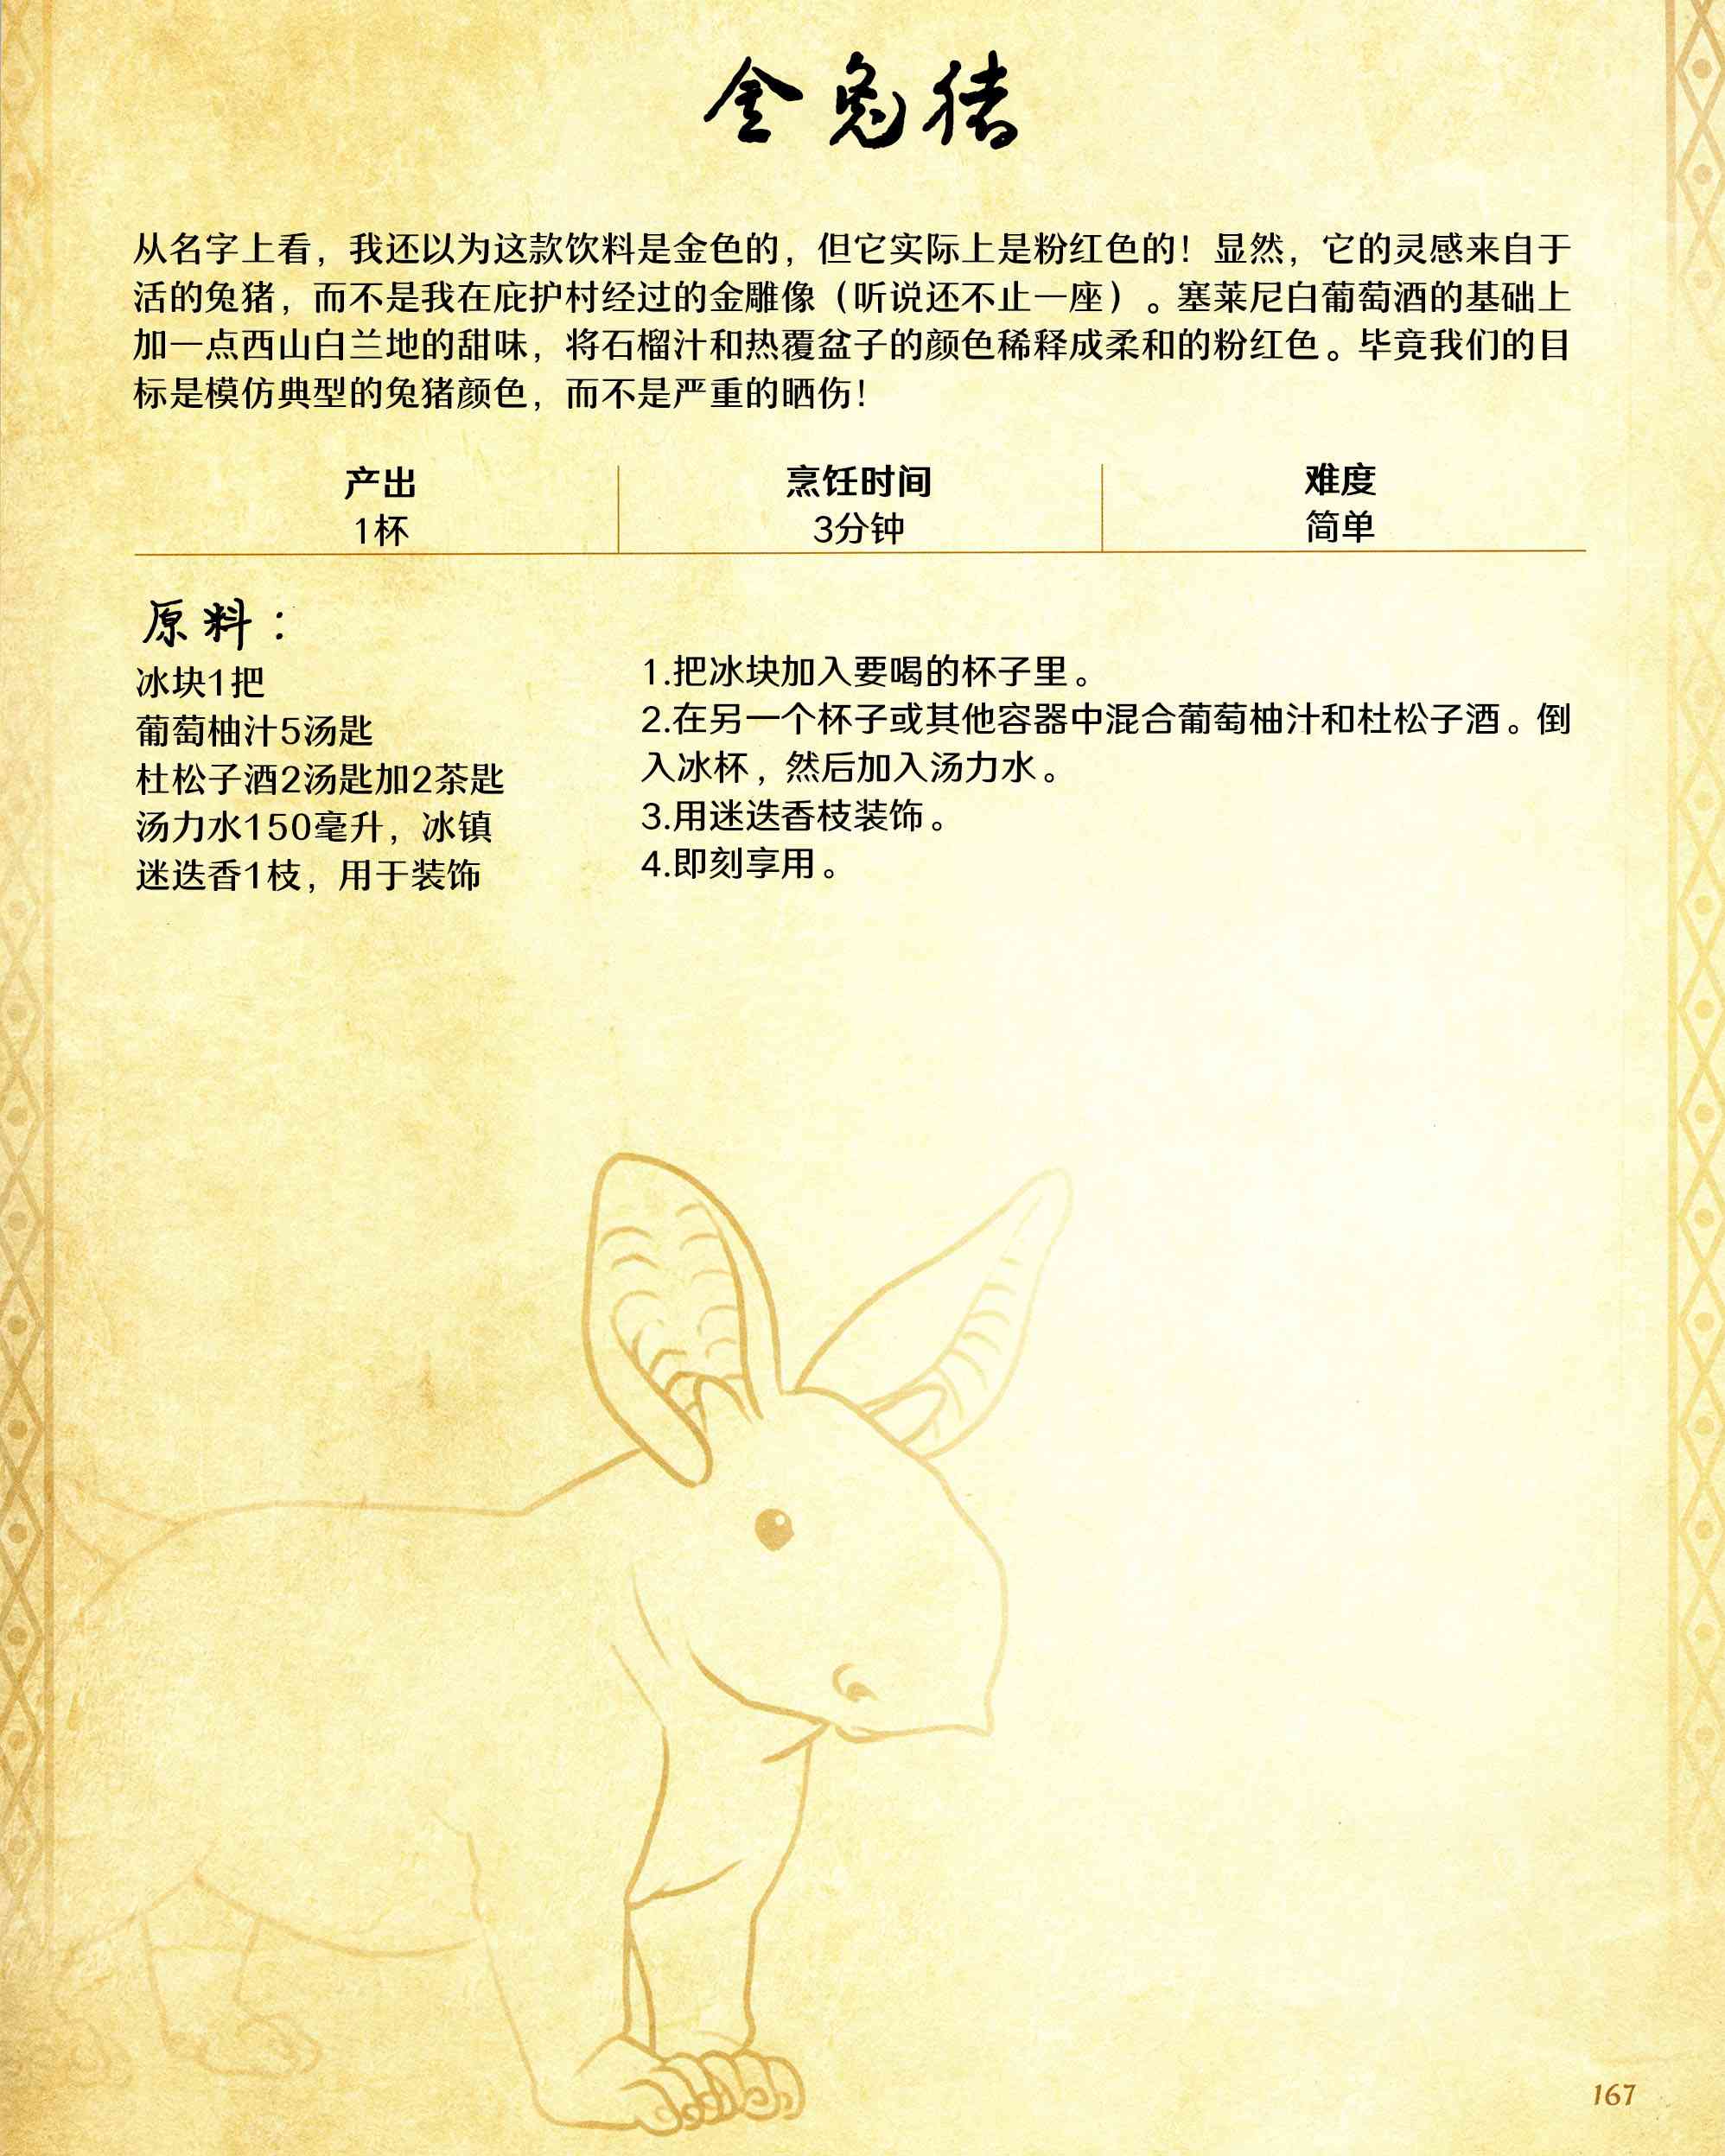 金兔猪
从名字上看，我还以为这款饮料是金色的，但它实际上是粉红色的！显然，它的灵感来自于
活的兔猪，而不是我在庇护村经过的金雕像（听说还不止一座）。塞莱尼白葡萄酒的基础上
加一点西山白兰地的甜味，将石榴汁和热覆盆子的颜色稀释成柔和的粉红色。毕竟我们的目
标是模仿典型的兔猪颜色，而不是严重的晒伤！
产出
1杯
烹饪时间
3分钟
难度
简单
原料：
冰块1把
葡萄柚汁5汤匙
杜松子酒2汤匙加2茶匙
汤力水150毫升，冰镇
迷迭香1枝，用于装饰
1.把冰块加入要喝的杯子里。
2.在另一个杯子或其他容器中混合葡萄柚汁和杜松子酒。倒
入冰杯，然后加入汤力水。
3.用迷迭香枝装饰。
4.即刻享用。
167